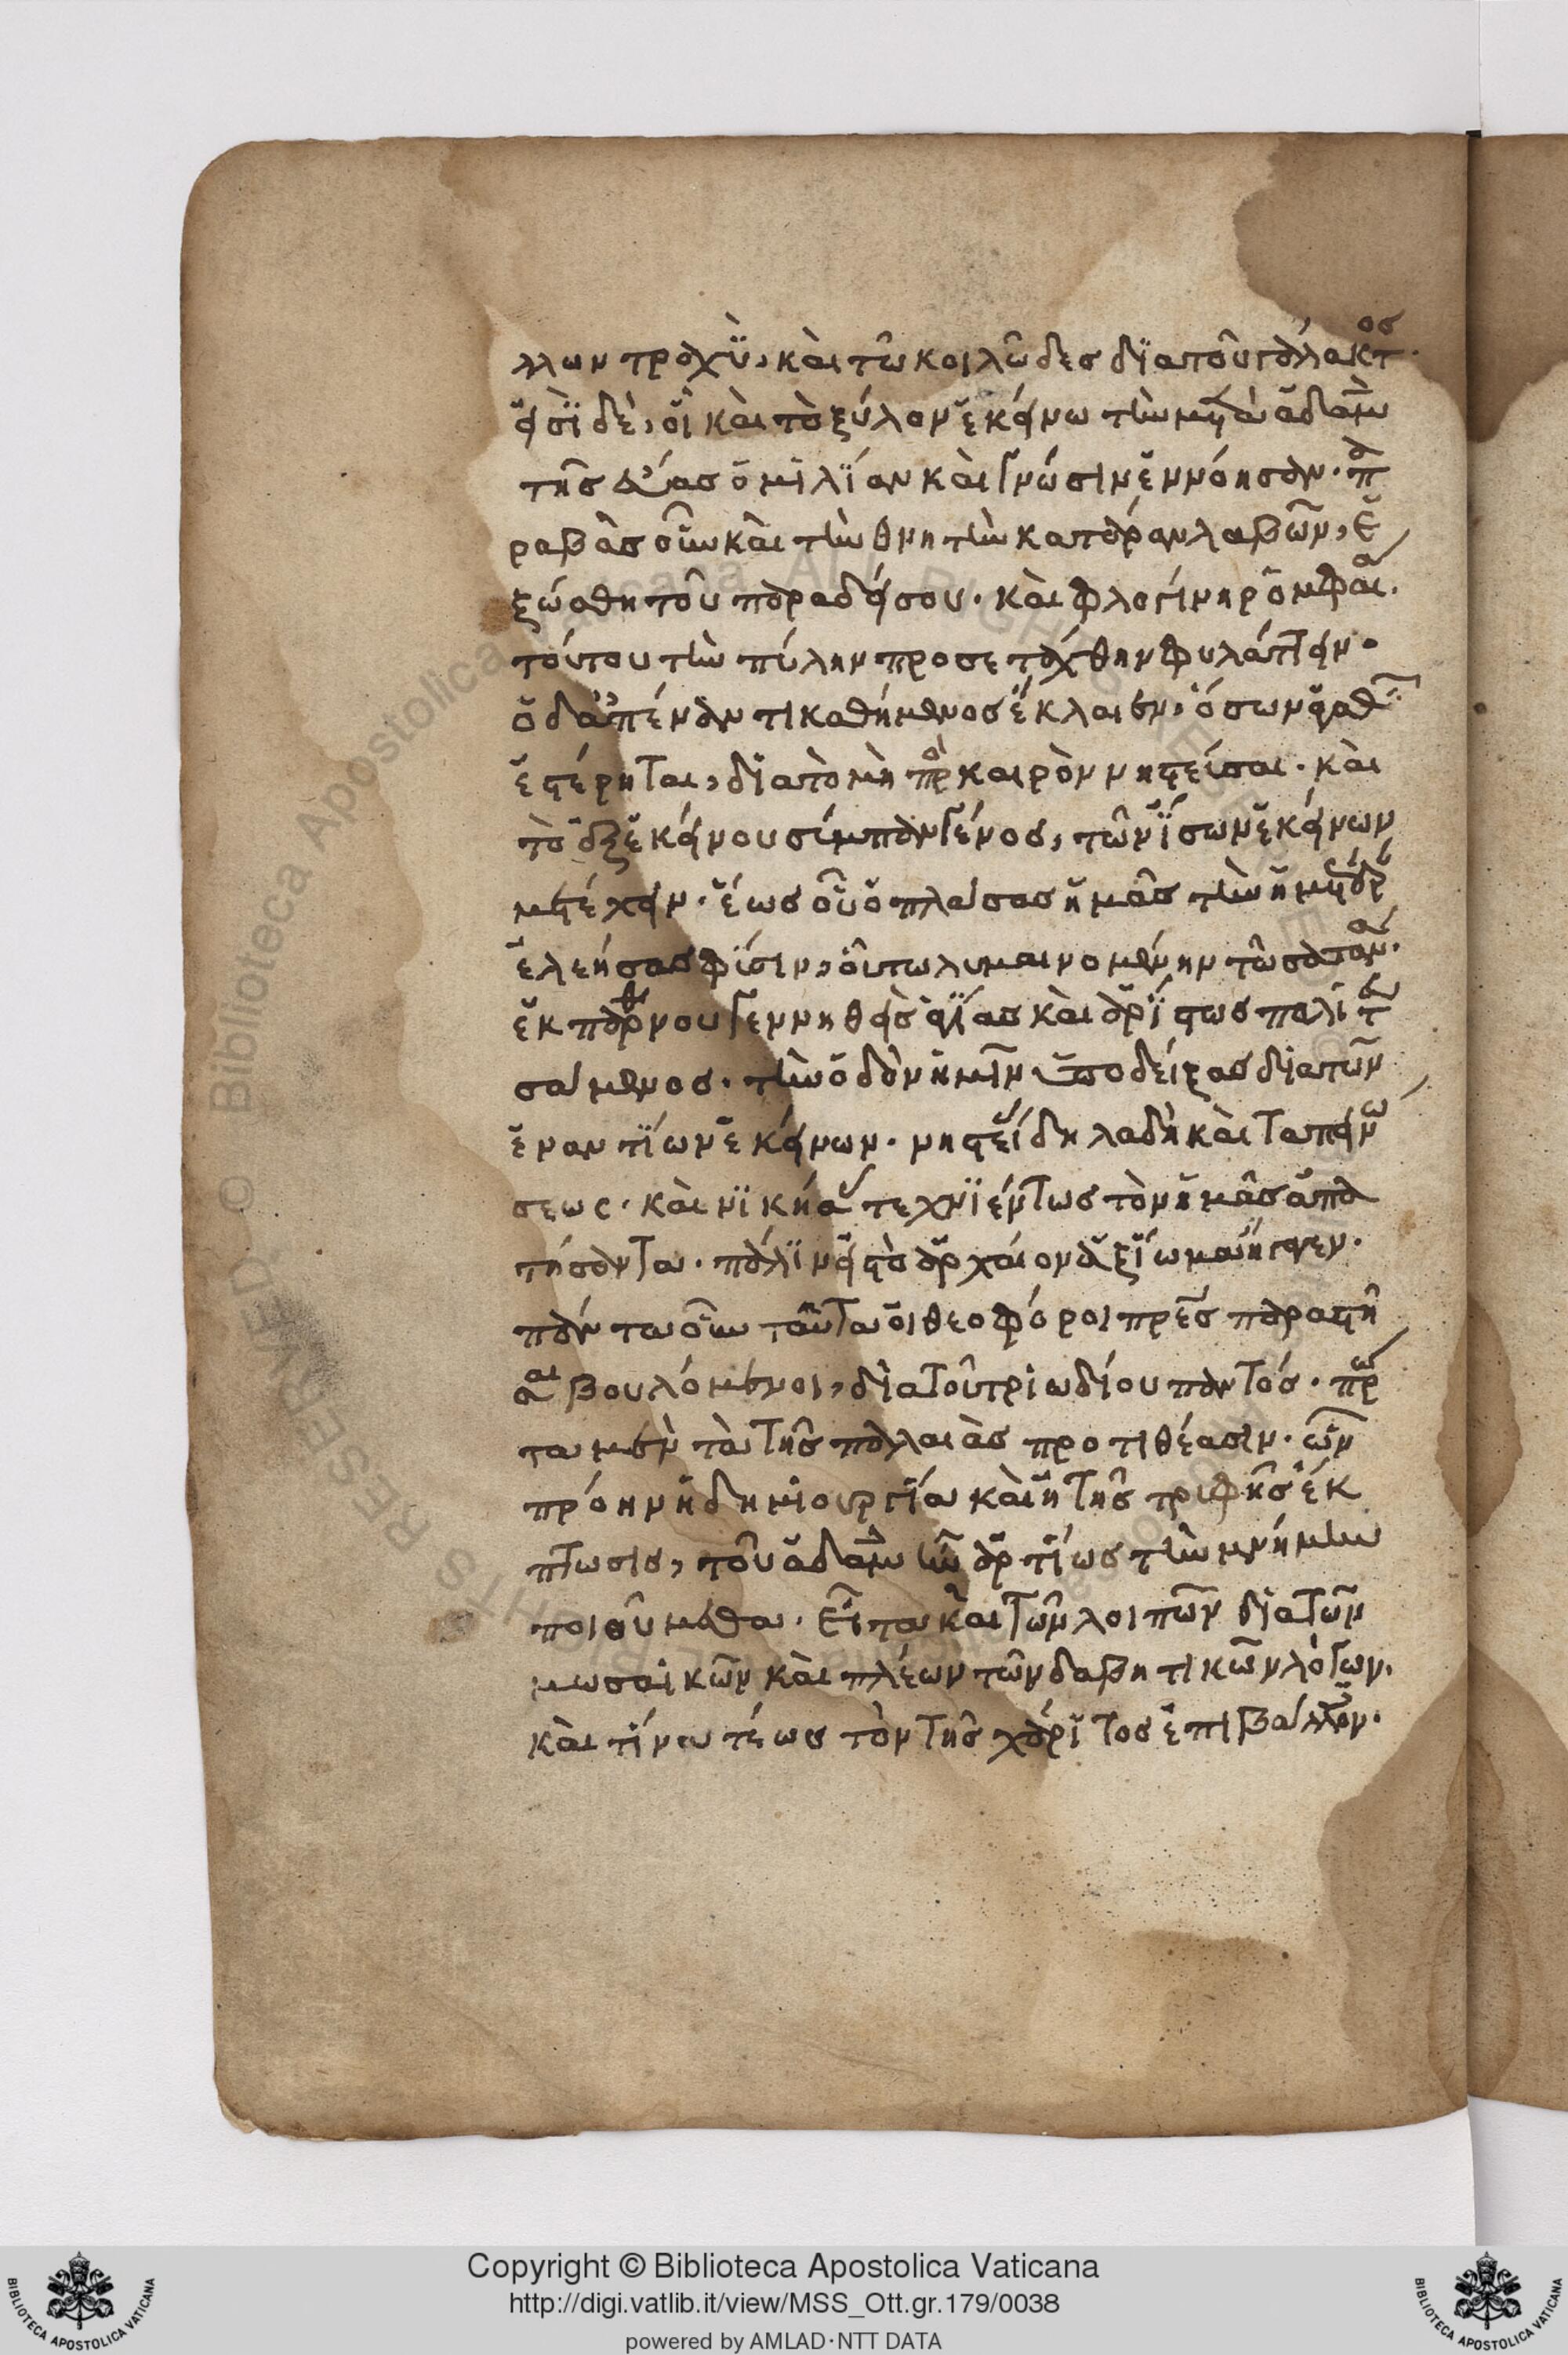 λλων τροχὺ, καὶ τῶ κοιλῶδες διὰ τοῦ γάλακτος.
εἰσὶ δὲ, οἳ καὶ τὸ ξύλον ἐκείνω τὴν μετὰ ἀδὰμ
τῆς εὔας ὁμιλίαν καὶ γνώσιν ἐννόησαν. πα
ραβὰς οὖν καὶ τὴν θνητὴν κατάραν λαβὼν, ἐ
ξώσθη τοῦ παραδείσου. καὶ φλογίνη ρομφαία
τούτου τὴν πύλην προσετάχθην φυλάττειν.
ὁ δ' ἀπέναντι καθήμενος ἔκλαιεν, ὅσων ἀγαθῶν
ἐστέρηται, διὰ τὸ μὴ πρὸ καιρὸν νηστεύσαι. καὶ
τὸ ἐξ ἐκείνου σύμπαν γένος, τῶν ἴσων ἐκείνων
μετέχειν. ἕως οὗ ὁ πλάσας ἡμᾶς τὴν ἡμετέραν
ἐλεήσας φύσιν, οὕτω λυμαινομένην τῶ σατανᾶ.
ἐκ παρθένου γεννηθεὶς ἁγίας καὶ ἀρίστως πολιτευ
σάμενος. τὴν ὁδὸν ἡμῖν ὑποδείξας διὰ τῶν
ἐναντίων ἐκείνων. νηστεία δηλαδὴ καὶ ταπεινώ
σεως. καὶ νικήσας τεχνιέντως τὸν ἡμᾶς ἀπα
τήσαντα. πάλιν εἰς τὸ ἀρχαίον ἀξίωμα ἤγαγεν.
πάντα οὖν ταῦτα οἱ θεοφόροι πρες παραστῆ
σαι βουλόμενοι, διὰ τοῦ τριωδίου παντός. πρῶ
τα μὲν τὰ τῆς παλαιᾶς προτιθέασιν. ὧν
πρόην ἡ δημιουργία καὶ ἡ τῆς τρυφῆς ἔκ
πτωσις, τοῦ ἀδὰμ ἣν ἀρτίως τὴν μνήμην
ποιούμεθα. εἶτα καὶ τῶν λοιπῶν διὰ τῶν
μωσαικῶν καὶ πλέων τῶν δαβητικῶν λόγων.
καὶ τίνα τέως τὸν τῆς χάριτος ἐπιβάλλον.
Copyright © Biblioteca Apostolica Vaticana
http://digi.vatlib.it/view/MSS_Ott.gr.179/0038
powered by AMLAD·NTT DATA